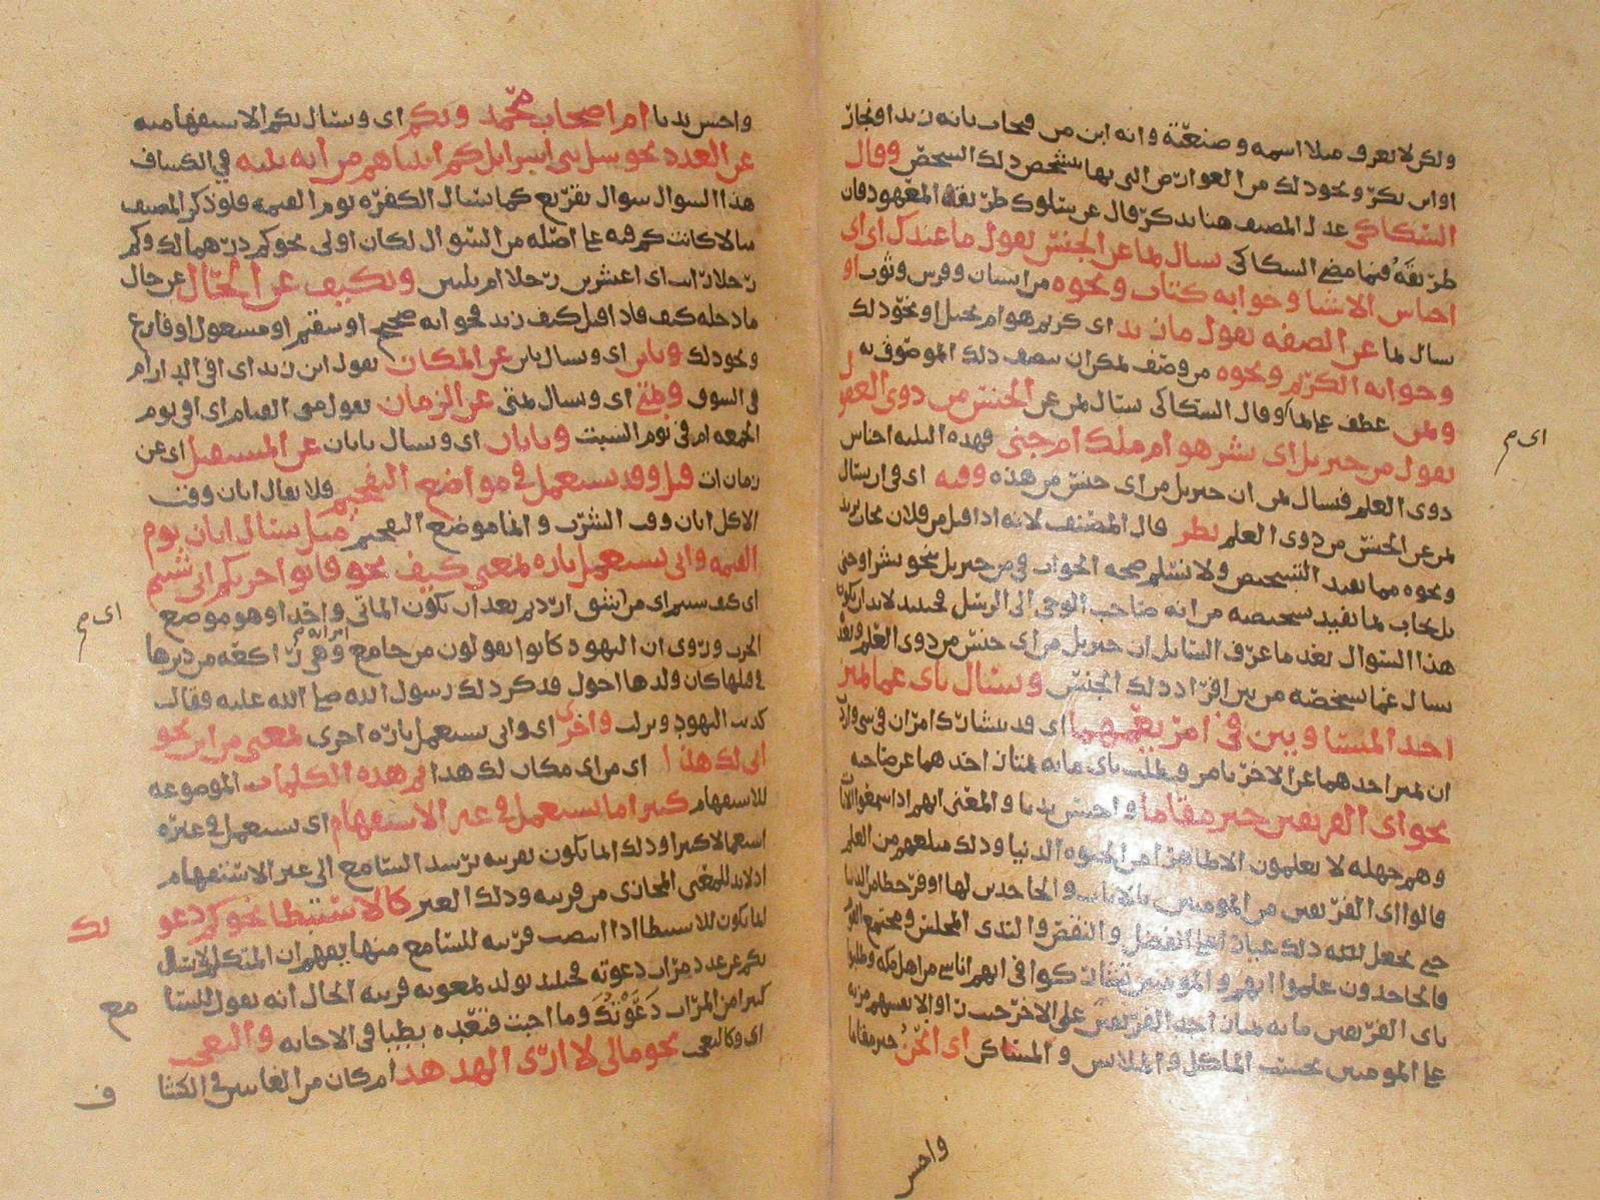 ولكن لا نعرف مثلا اسمه وصنعته وانه ابن من فيجاب بانه زيد او نجار
او ابن بكر ونحو ذلك من العوارض التي بها يتشخص ذلك الشخص وقال
السكاكي عدل المصنف هنا بذكر قال عن سلوك طريقة المعهود فان
طريقه فيما مضى السكاكي يسال بما عن الجنس تقول ما عندك اي اي
اجناس الاشيا وجوابه كتاب ونحوه من انسان وفرس وثوب او
يسال بما عن الصفه تقول ما زيد اي كريم هو ام بخيل او نحو ذلك
وجوابه الكريم ونحوه من وصف يمكن ان يتصف ذلك الموصوف به
وبمن عطف على بما وقال السكاكي يسال بمن عن الجنس من ذوي العقول
تقول من جبريل اي بشر هو ام ملك ام جني فهذه الثلثه اجناس
ذوي العلم فيسال بمن ان جبريل من اي جنس من هذه وفيه اي في ان يسال
بمن عن الجنس من ذوي العلم نظر قال المصنف لانه اذا قيل من فلان يجاب بزيد
ونحوه مما يفيد التشخيص ولا نسلم صحه الجواب في من جبريل بنحو بشر او جني
بل يجاب بما يفيد تشخيصه من انه صاحب الوحي الى الرسل فحينئذ لابد ان يكون
هذا السوال بعد ما عرف السايل ان جبريل من اي جنس من ذوي العلم
سال عما يشخصه من بين افراد ذلك الجنس ويسال باي عما يميز
احد المتشاركين في امر يعمهما اي قد يتشارك امران في شي واريد
ان يميز احدهما عن الاخر بامر ويطلب باي ما به يمتاز احدهما عن صاحبه
نحو اي الفريقين خير مقاما واحسن نديا والمعنى انهم اذا سمعوا الايات
وهم جهله لا يعلمون الا ظاهرا من الحيوه الدنيا وذلك مبلغهم من العلم
قالوا اي الفريقين من المومنين بالايات والجاحدين لها اوفر حظا من الدنيا
حتى يجعل ذلك عيارا على الفضل والنقص والندى المجلس ومجتمع القوم
فالجاحدون علموا انهم والمومنين تشاركوا في انهم اناس من اهل مكه وطلبوا
باي الفريقين ما به يمتاز احد الفريقين على الاخر حيث راوا لانفسهم مزيه
على المومنين بحسب الماكل والملابس والمساكن اي انحن خير مقاما
واحسن
اي م
واحسن نديا ام اصحاب محمد وبكم اي ويسال بكم الاستفهاميه
عن العدد نحو سل بني اسرايل كم اتيناهم من ايه بينه في الكشاف
هذا السوال سوال تقريع كما يسال الكفره يوم القيمه فلو ذكر المصنف
مثالا كانت كم فيه على اصله من السوال لكان اولى نحو كم درهما لك وكم
رجلا رايت اي اعشرين رجلا ام ثلثين وبكيف عن الحال عن حال
مادخله كيف فاذا قيل كيف زيد فجوابه صحيح او سقيم او مشغول او فارغ
ونحو ذلك وباين اي ويسال باين عن المكان تقول اين زيد اي افي الدار ام
في السوق وبمتى اي ويسال بمتى عن الزمان تقول متى القيام اي افي يوم
الجمعه ام في يوم السبت وبايان اي ويسال بايان عن المستقبل اي عن
زمان ات قيل وقد يستعمل في مواضع التفخيم فلا يقال ايان وقت
الاكل ايان وقت الشرب وانما موضع التفخيم مثل يسال ايان يوم
القيمه وانى يستعمل تاره بمعنى كيف نحو فاتوا حرثكم انى شيتم
اي كيف شيتم اي من اي شق اردتم بعد ان يكون الماتى واحدا وهو موضع
الحرث وروي ان اليهود كانوا يقولون من جامع امراته وهي راكعه من دبرها
في قبلها كان ولدها احول فذكر ذلك رسول الله صلى الله عليه فقال
كذبت اليهود ونزلت واخرى اي وانى يستعمل تاره اخرى بمعنى من اين نحو
انى لك هذا اي من اي مكان لك هذا ثم هذه الكلمات الموضوعه
للاستفهام كثيرا ما يستعمل في غير الاستفهام اي يستعمل في غيره
استعمالا كثيرا وذلك انما يكون بقرينه ترشد السامع الى غير الاستفهام
اذ لابد للمعنى المجازي من قرينه وذلك الغير كالاستبطا نحو كم دعو
تك
انما يكون للاستبطا اذا انتصب قرينه للسامع منها يفهم ان المتكلم لا يسال
بكم عن عدد مرات دعوته فحينئذ يولد بمعونه قرينه الحال انه يقول للسا
مع
كثيرا من المرات دعوتك وما اجبت فتعده بطيا في الاجابه والتعجب
اي وكالتعجب نحو مالي لا ارى الهدهد ام كان من الغايبين في الكشا
ف
اي م